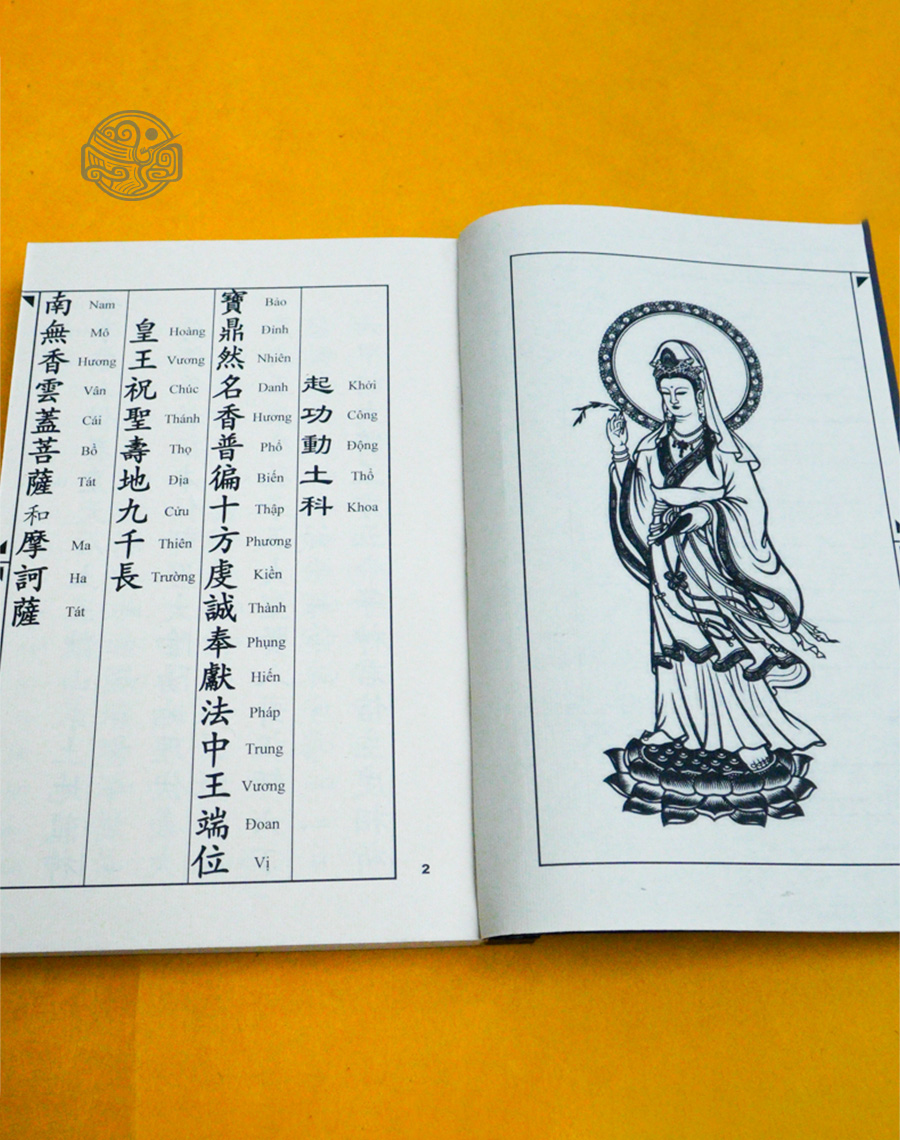 起功動土科
Khởi Công Động Thổ Khoa
寶鼎然名香普徧十方虔誠奉獻法中王端位
Bảo Đỉnh Nhiên Danh Hương Phổ Biến Thập Phương Kiền Thành Phụng Hiến Pháp Trung Vương Đoan Vị
皇王祝聖壽地九千長
Hoàng Vương Chúc Thánh Thọ Địa Cửu Thiên Trường
南無香雲蓋菩薩和摩訶薩
Nam Mô Hương Vân Cái Bồ Tát Ma Ha Tát
2